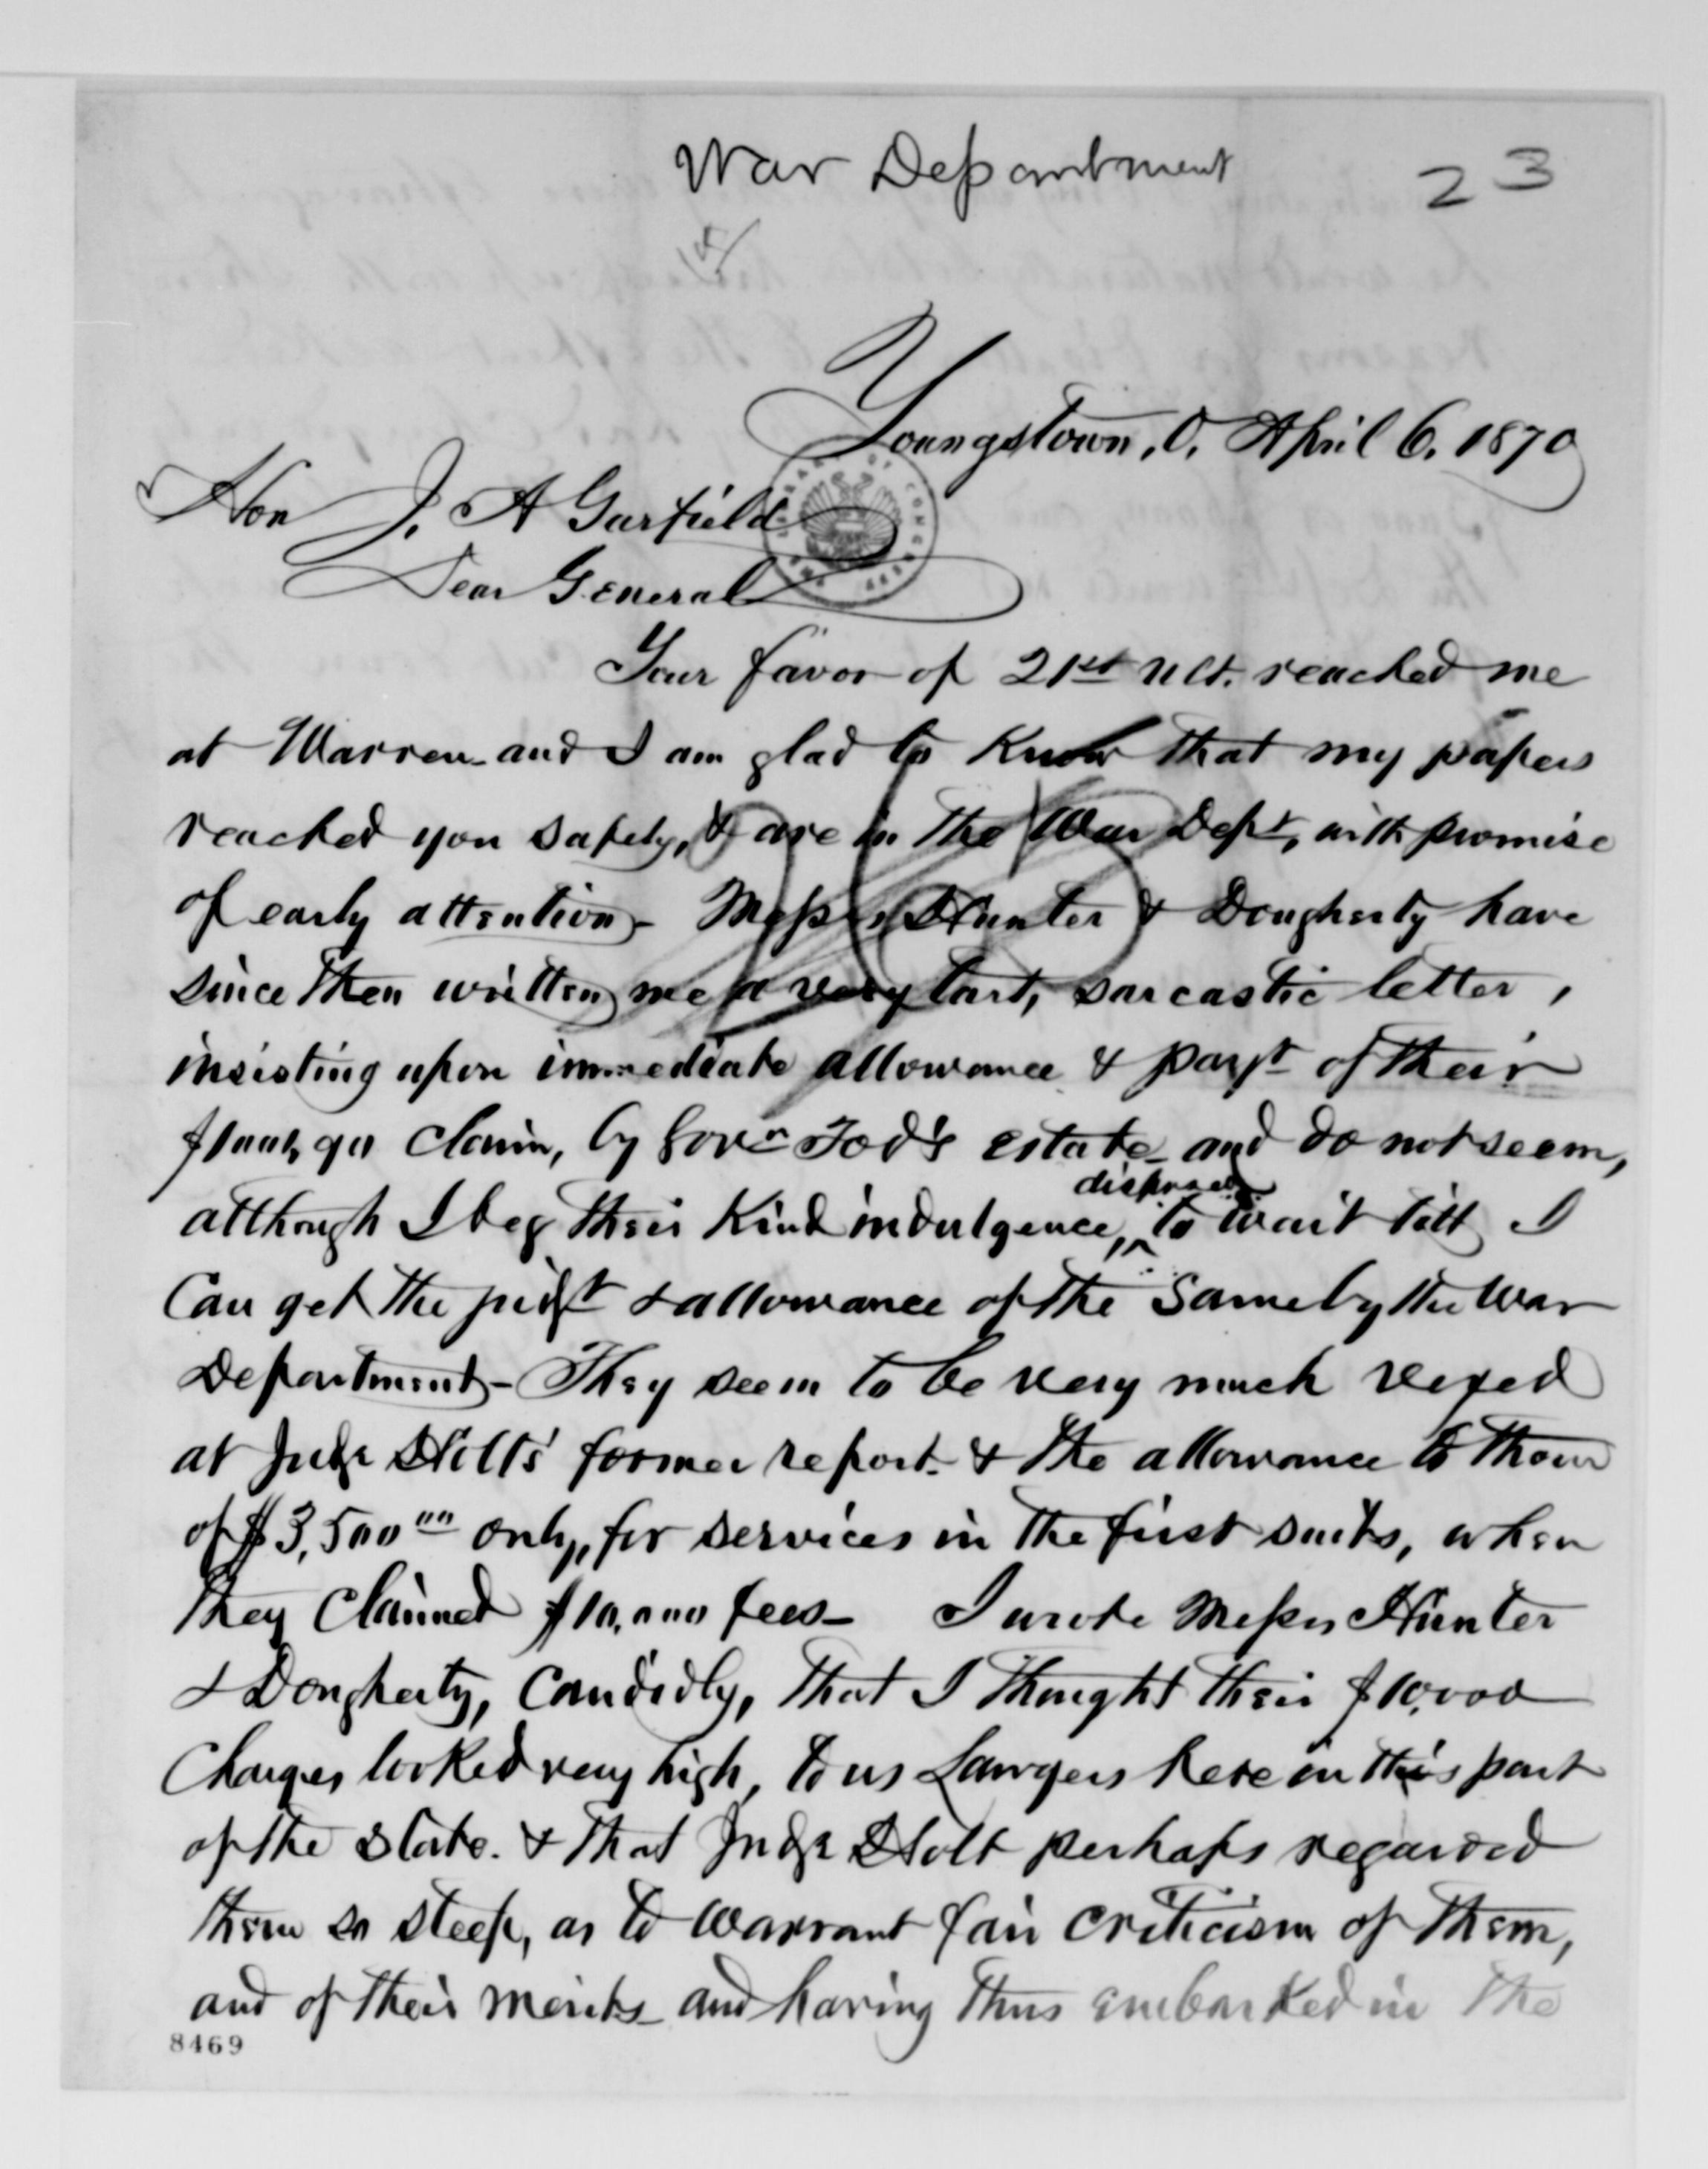 War Department
23
Youngstown, O, April 6, 1870
Hon J. A Garfield
Dear General
Your favor of 21st ult. reached me
at Warren - and I am glad to know that my papers
reached you safely, & are in the War Dept, with promise
of early attention - Messrs Hunter & Dougherty have
since then written me a very tart, sarcastic letter,
insisting upon immediate allowance & payt of their
claim, by Govn Tod's estate - and do not seem,
disposed
although I beg their kind indulgence, ^ to wait till I
Can get the & allowance of the same by the War
Department - They seem to be very much vexed
at Judge Holts' former report. & the allowance to them
of $3,500 00 only, for services in the first suits, when
they claimed $10,000 fees - I wrote Messrs Hunter
& Dougherty, Candidly, that I thought their $10,000
Charges looked very high, to us Lawyers here in this part
of the State. & that Judge Holt perhaps regarded
them so steep, as to warrant fair criticism of them,
and of their merits - and having thus embarked in the
8469